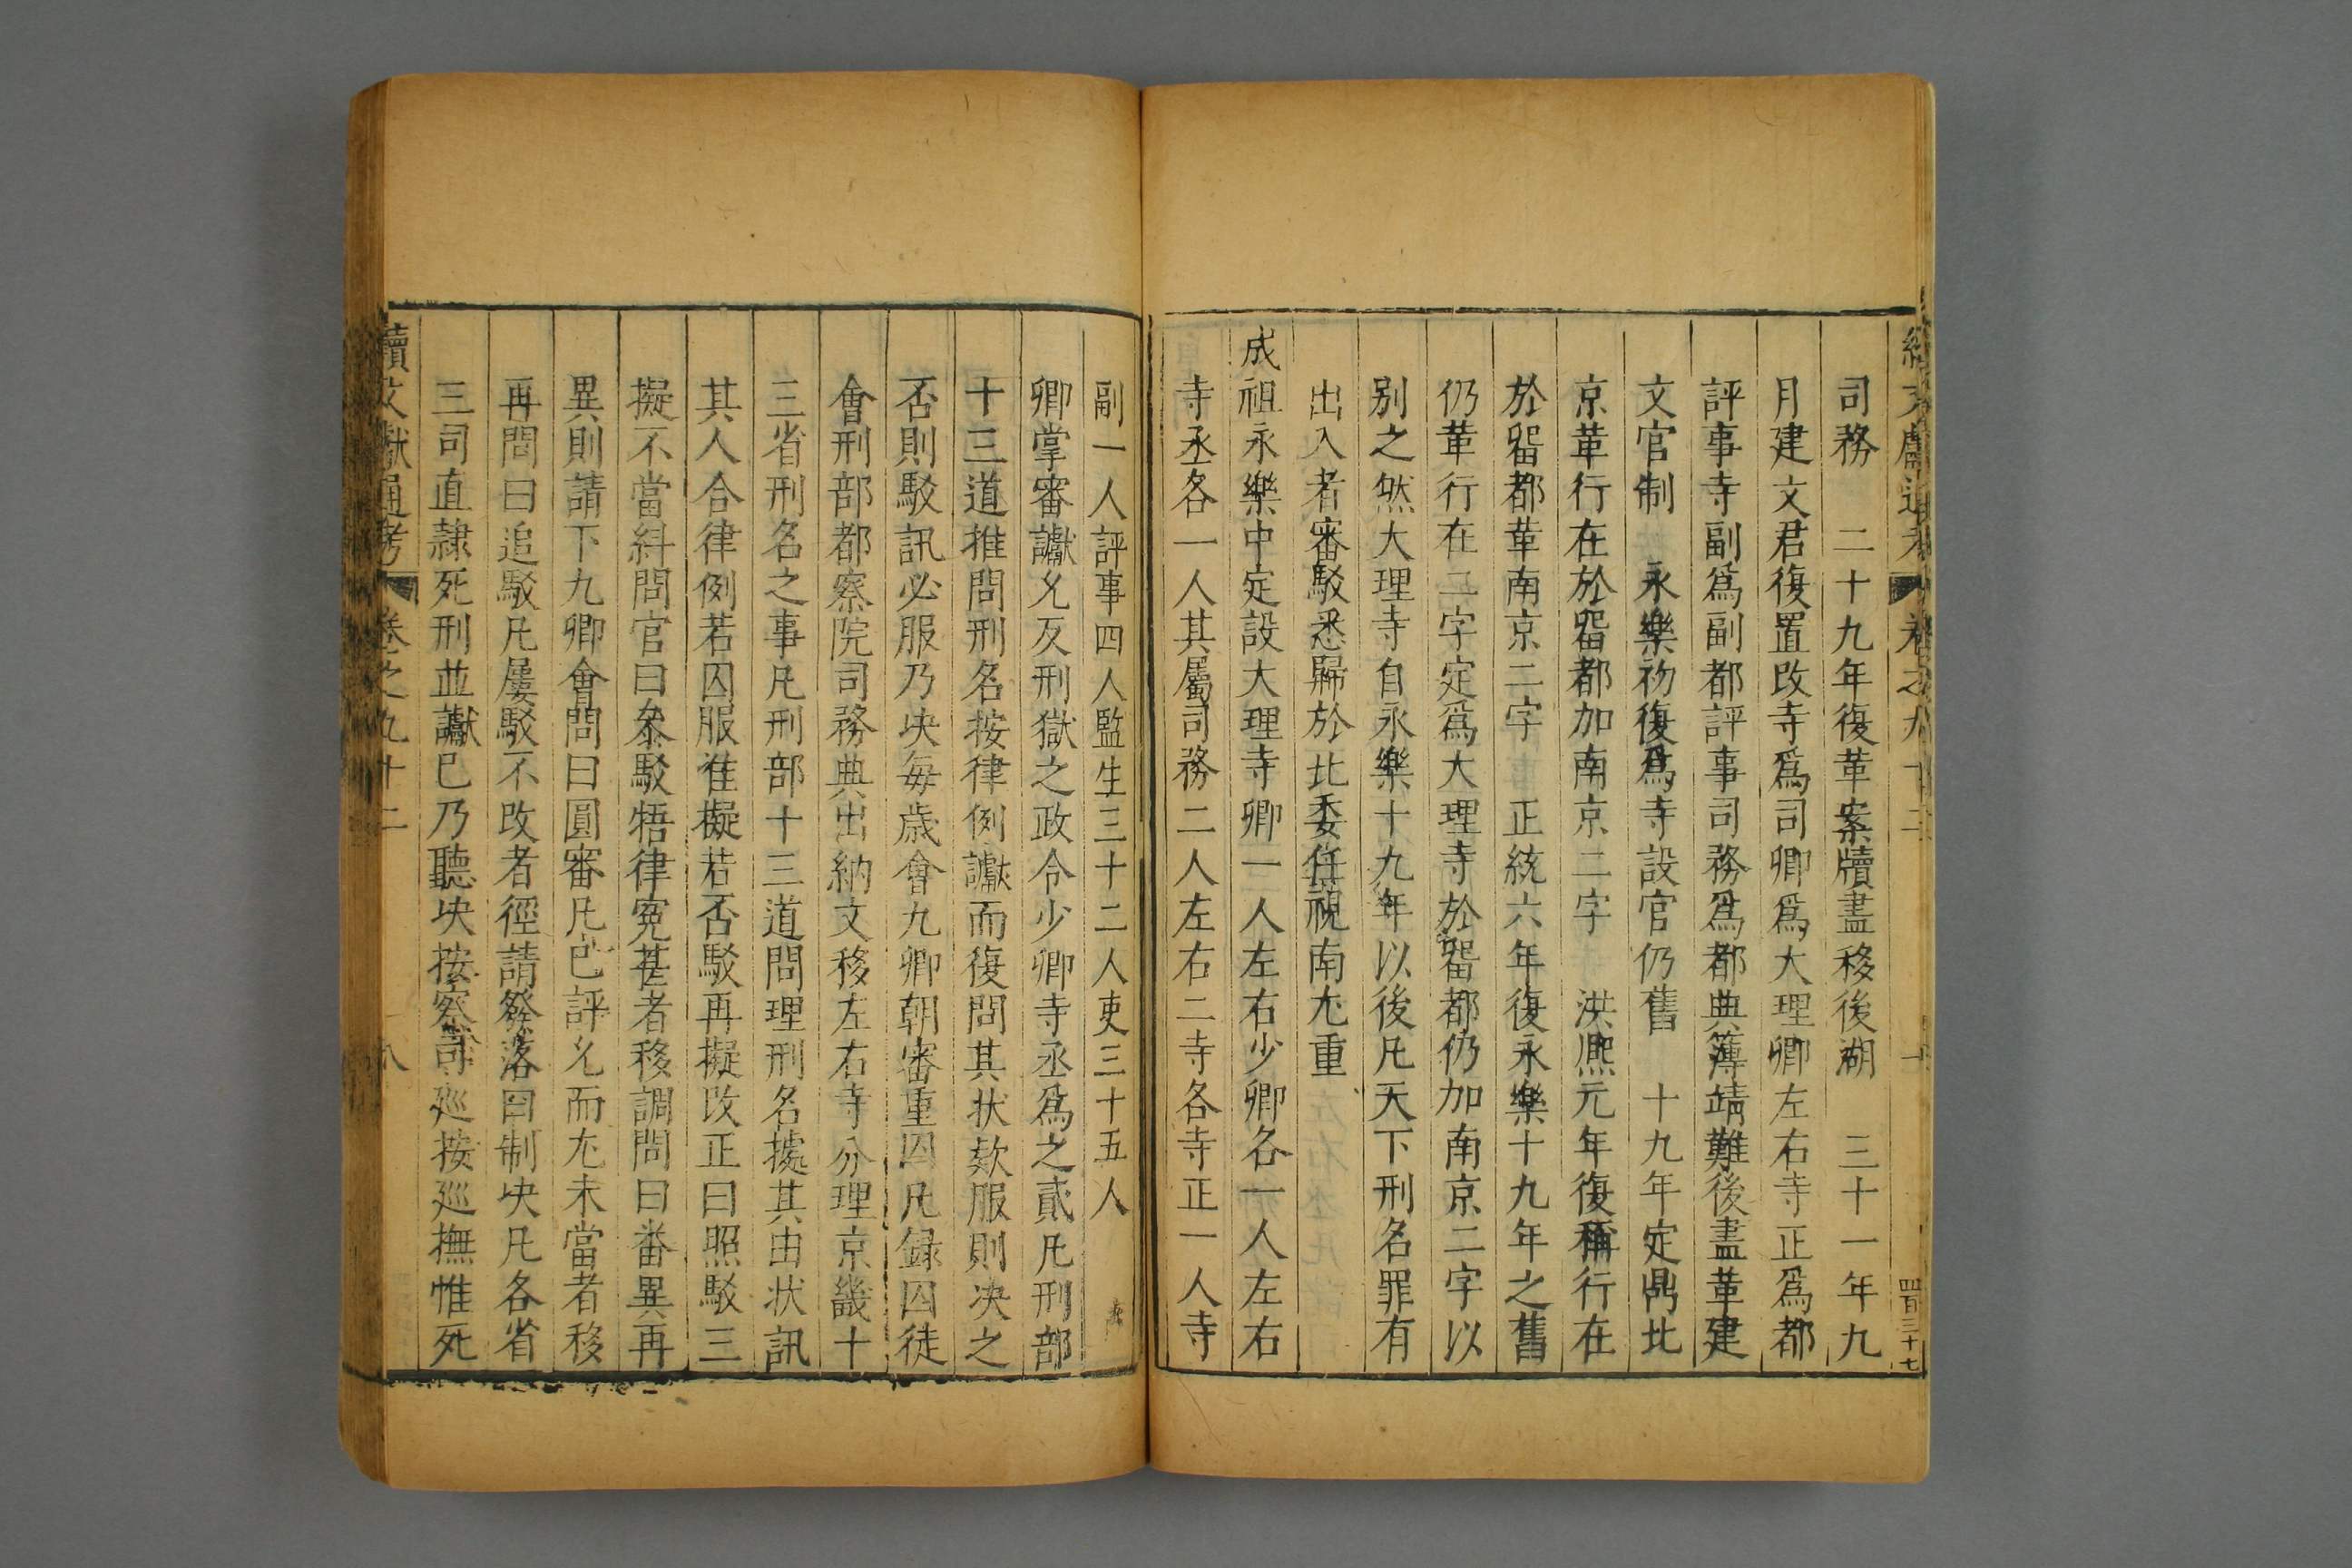 司務　二十九年復革案牘盡移後湖　三十一年九
月建文君復置改寺爲司卿爲大理卿左右寺正爲都
評事寺副爲副都評事司務爲都典簿靖難後盡革建
文官制　永樂初復爲寺設官仍舊　十九年定鼎北
京革行在於畱都加南京二字　洪熈元年復稱行在
於畱都革南京二字　正統六年復永樂十九年之舊
仍革行在二字定爲大理寺於畱都仍加南京二字以
别之然大理寺自永樂十九年以後凡天下刑名罪有
出入者審駁悉歸於北委任視南尢重
成祖永樂中定設大理寺卿一人左右少卿各一人左右
寺丞各一人其屬司務二人左右二寺各寺正一人寺
副一人評事四人監生三十二人吏三十五人
卿掌審讞允反刑獄之政令少卿寺丞爲之貳凡刑部
十三道推問刑名按律例讞而復問其状欵服則决之
否則駁訊必服乃决每歳會九卿朝審重囚凡録囚徒
會刑部都察院司務典出納文移左右寺分理京畿十
三省刑名之事凡刑部十三道問理刑名據其由状訊
其人合律例若囚服准擬若否駁再擬改正曰照駁三
擬不當糾問官曰叅駁牾律寃甚者移調問曰番異再
異則請下九卿會問曰圓審凡已評允而尢未當者移
再問曰追駁凡屢駁不改者徑請發落曰制决凡各省
三司直隷死刑並讞已乃聽决按察司廵按廵撫惟死
續文獻通考　卷之九十二　八